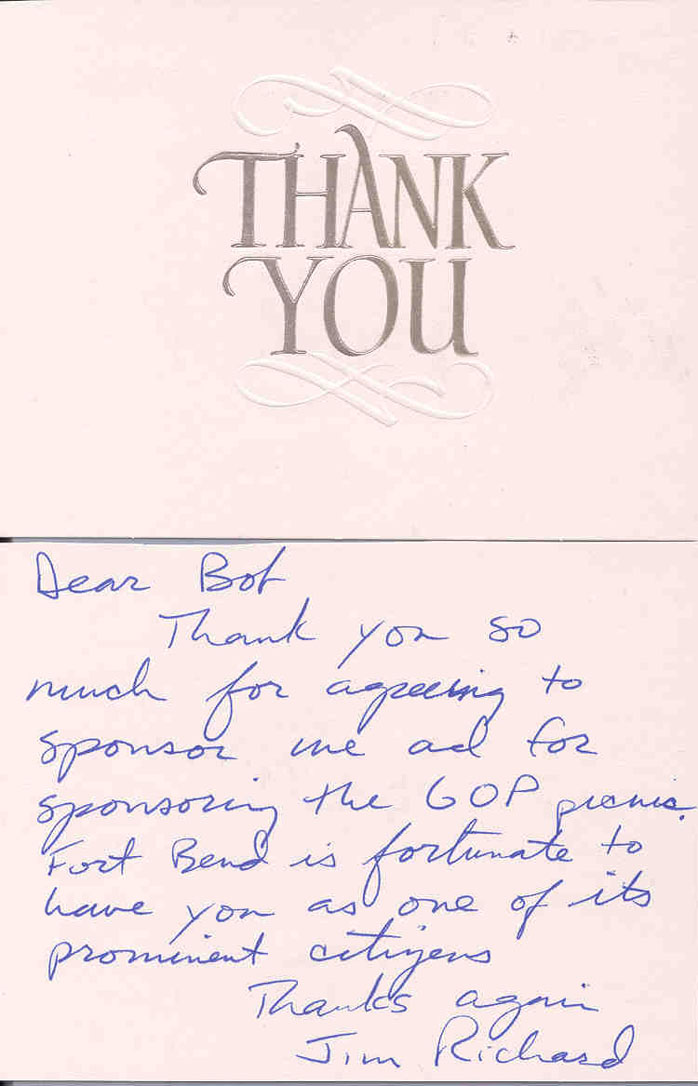 THANK
YOU
Dear Bob
Thank you so
much for agreeing to
sponsor me ad for
sponsoring the GOP picnic.
Fort Bend is fortunate to
have you as one of its
prominent citizens
Thanks again
Jim Richard